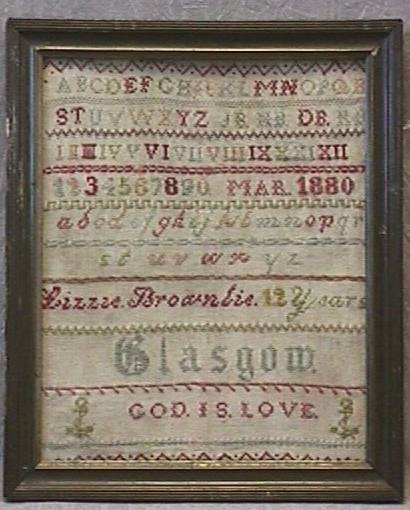 ABCDEFGHIJKLMNOPQR
STUVWXYZ JB. DB.
I II III IV V VI VII VIII IX X XI XII
1234567890 MAR. 1880
abcdefghijklmnopqr
stuvwxyz
Lizzie. Brownlie. 12 Years
Glasgow.
GOD. IS. LOVE.